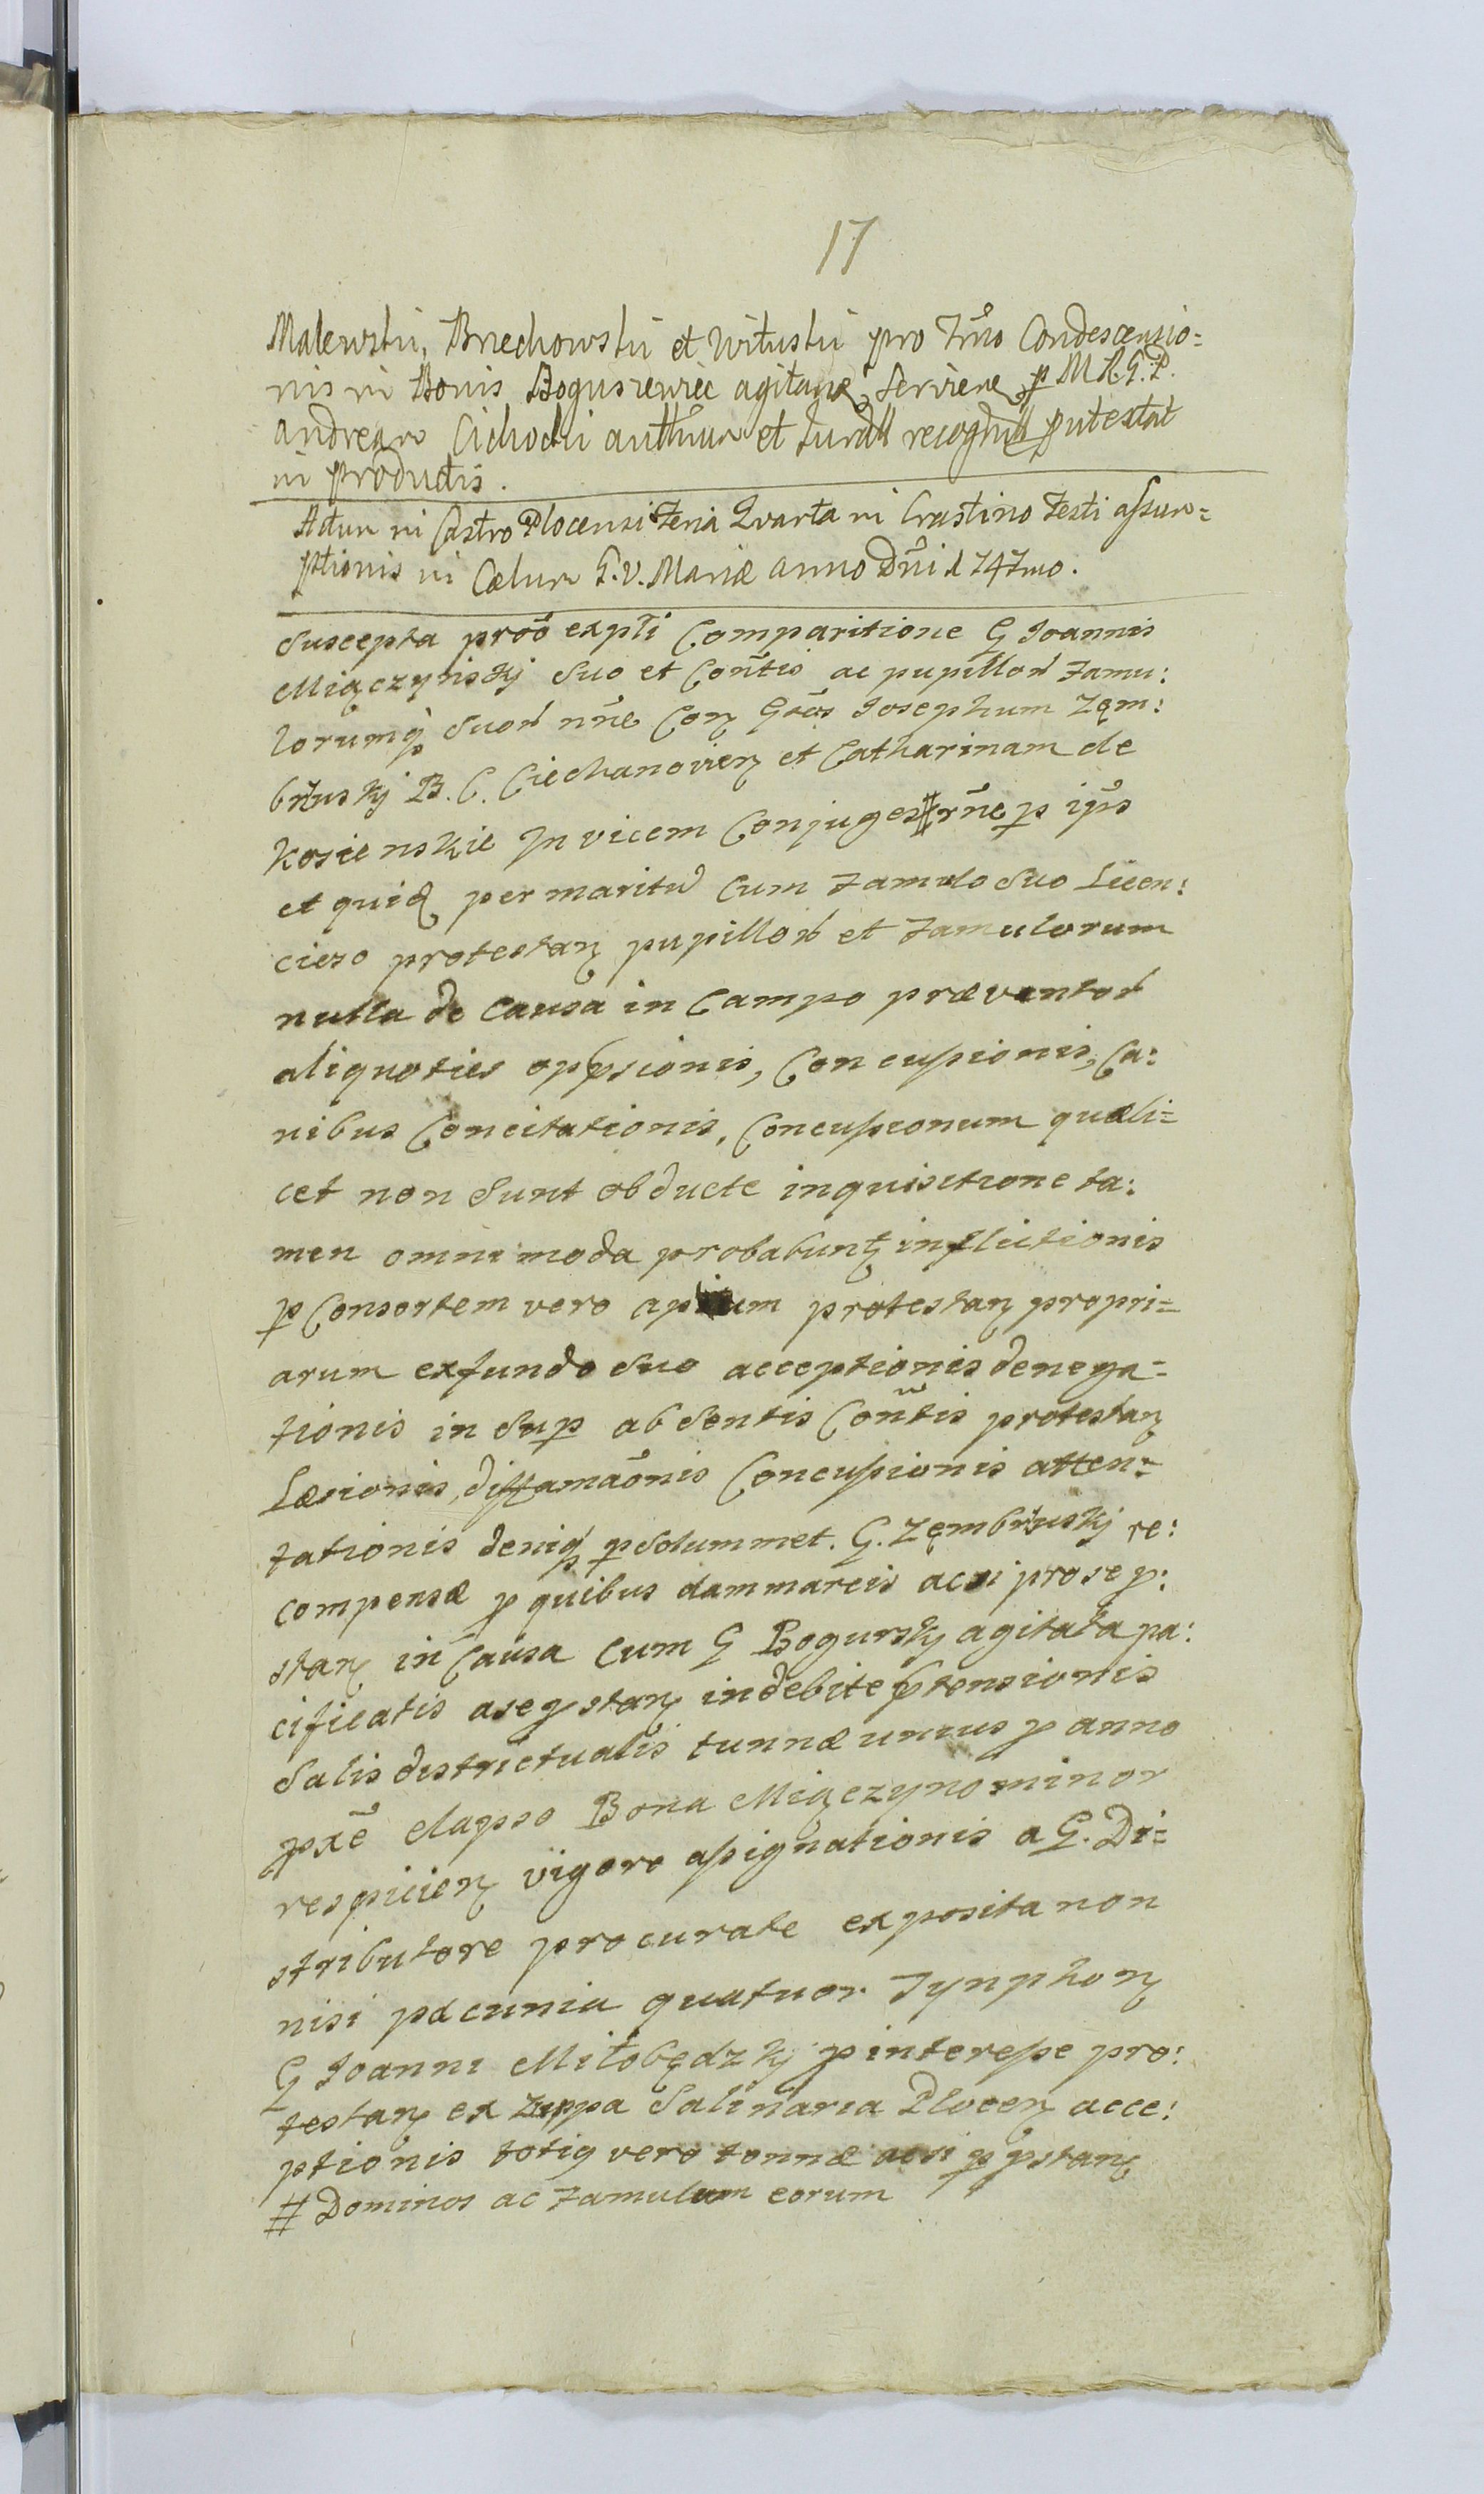 17
Malewski, Brzechowski et Wituski pro Trno Condescensio=
nis in Bonis Boguszewiec agitanę servienę p M R. G. P.
Andream Cichocki authnum et Jurall recognull putestat
in productis.
Actum in Castro Plocensi Feria Quarta in Crastino Festi assum=
ptionis in Cælum G. V. Mariæ anno Dñi 1747mo.
Suscepta proõ expti Comparitione G Joannis
Miączynskj Suo et Coñtis ac pupillor famu:
lorumq Suor nñe Con Gños Josephum Zęm:
brzuskj B. C. Ciechanovien et Catharinam de
Kosienskie Invicem Conjuges # rñe p ips
et quid per maritũ Cum famulo Suo Licen:
cioso protestan pupillor et famulorum
nulla de Causa in Campo præventor
aliquoties oppsionis, Concussionis, Ca:
nibus Concitationis, Concussionum quæ li=
cet non Sunt obducte inquisitione ta:
men omnimoda probabunt inflictionis
p Consortem vero apium protestan propri=
arum exfundo Suo acceptionis denega=
tionis in Sup absentis Coñtis protestan
Læsionis, diffamaõnis Concussionis atten=
tationis deniq p Solummet. G. Zęmbrzuskj re:
compensæ p quibus dammarcis acsi prose p:
stan in Causa Cum G Bogurskj agitata pa:
cificatis ase p stan indebite ptensionis
Salis districtualis tunnæ unius p anno
pxē elapso Bona Miączyno minor
respicien vigore assignationis a G. Di=
stributore procurate exposita non
nisi pæcunia quatuor Tynphon
G Joanni Miłobędzkj p interesse pro:
testan ex Zuppa Salinaria Plocen acce:
ptionis totiq vero tonnæ acsi p pstan
# Dominos ac famulum eorum